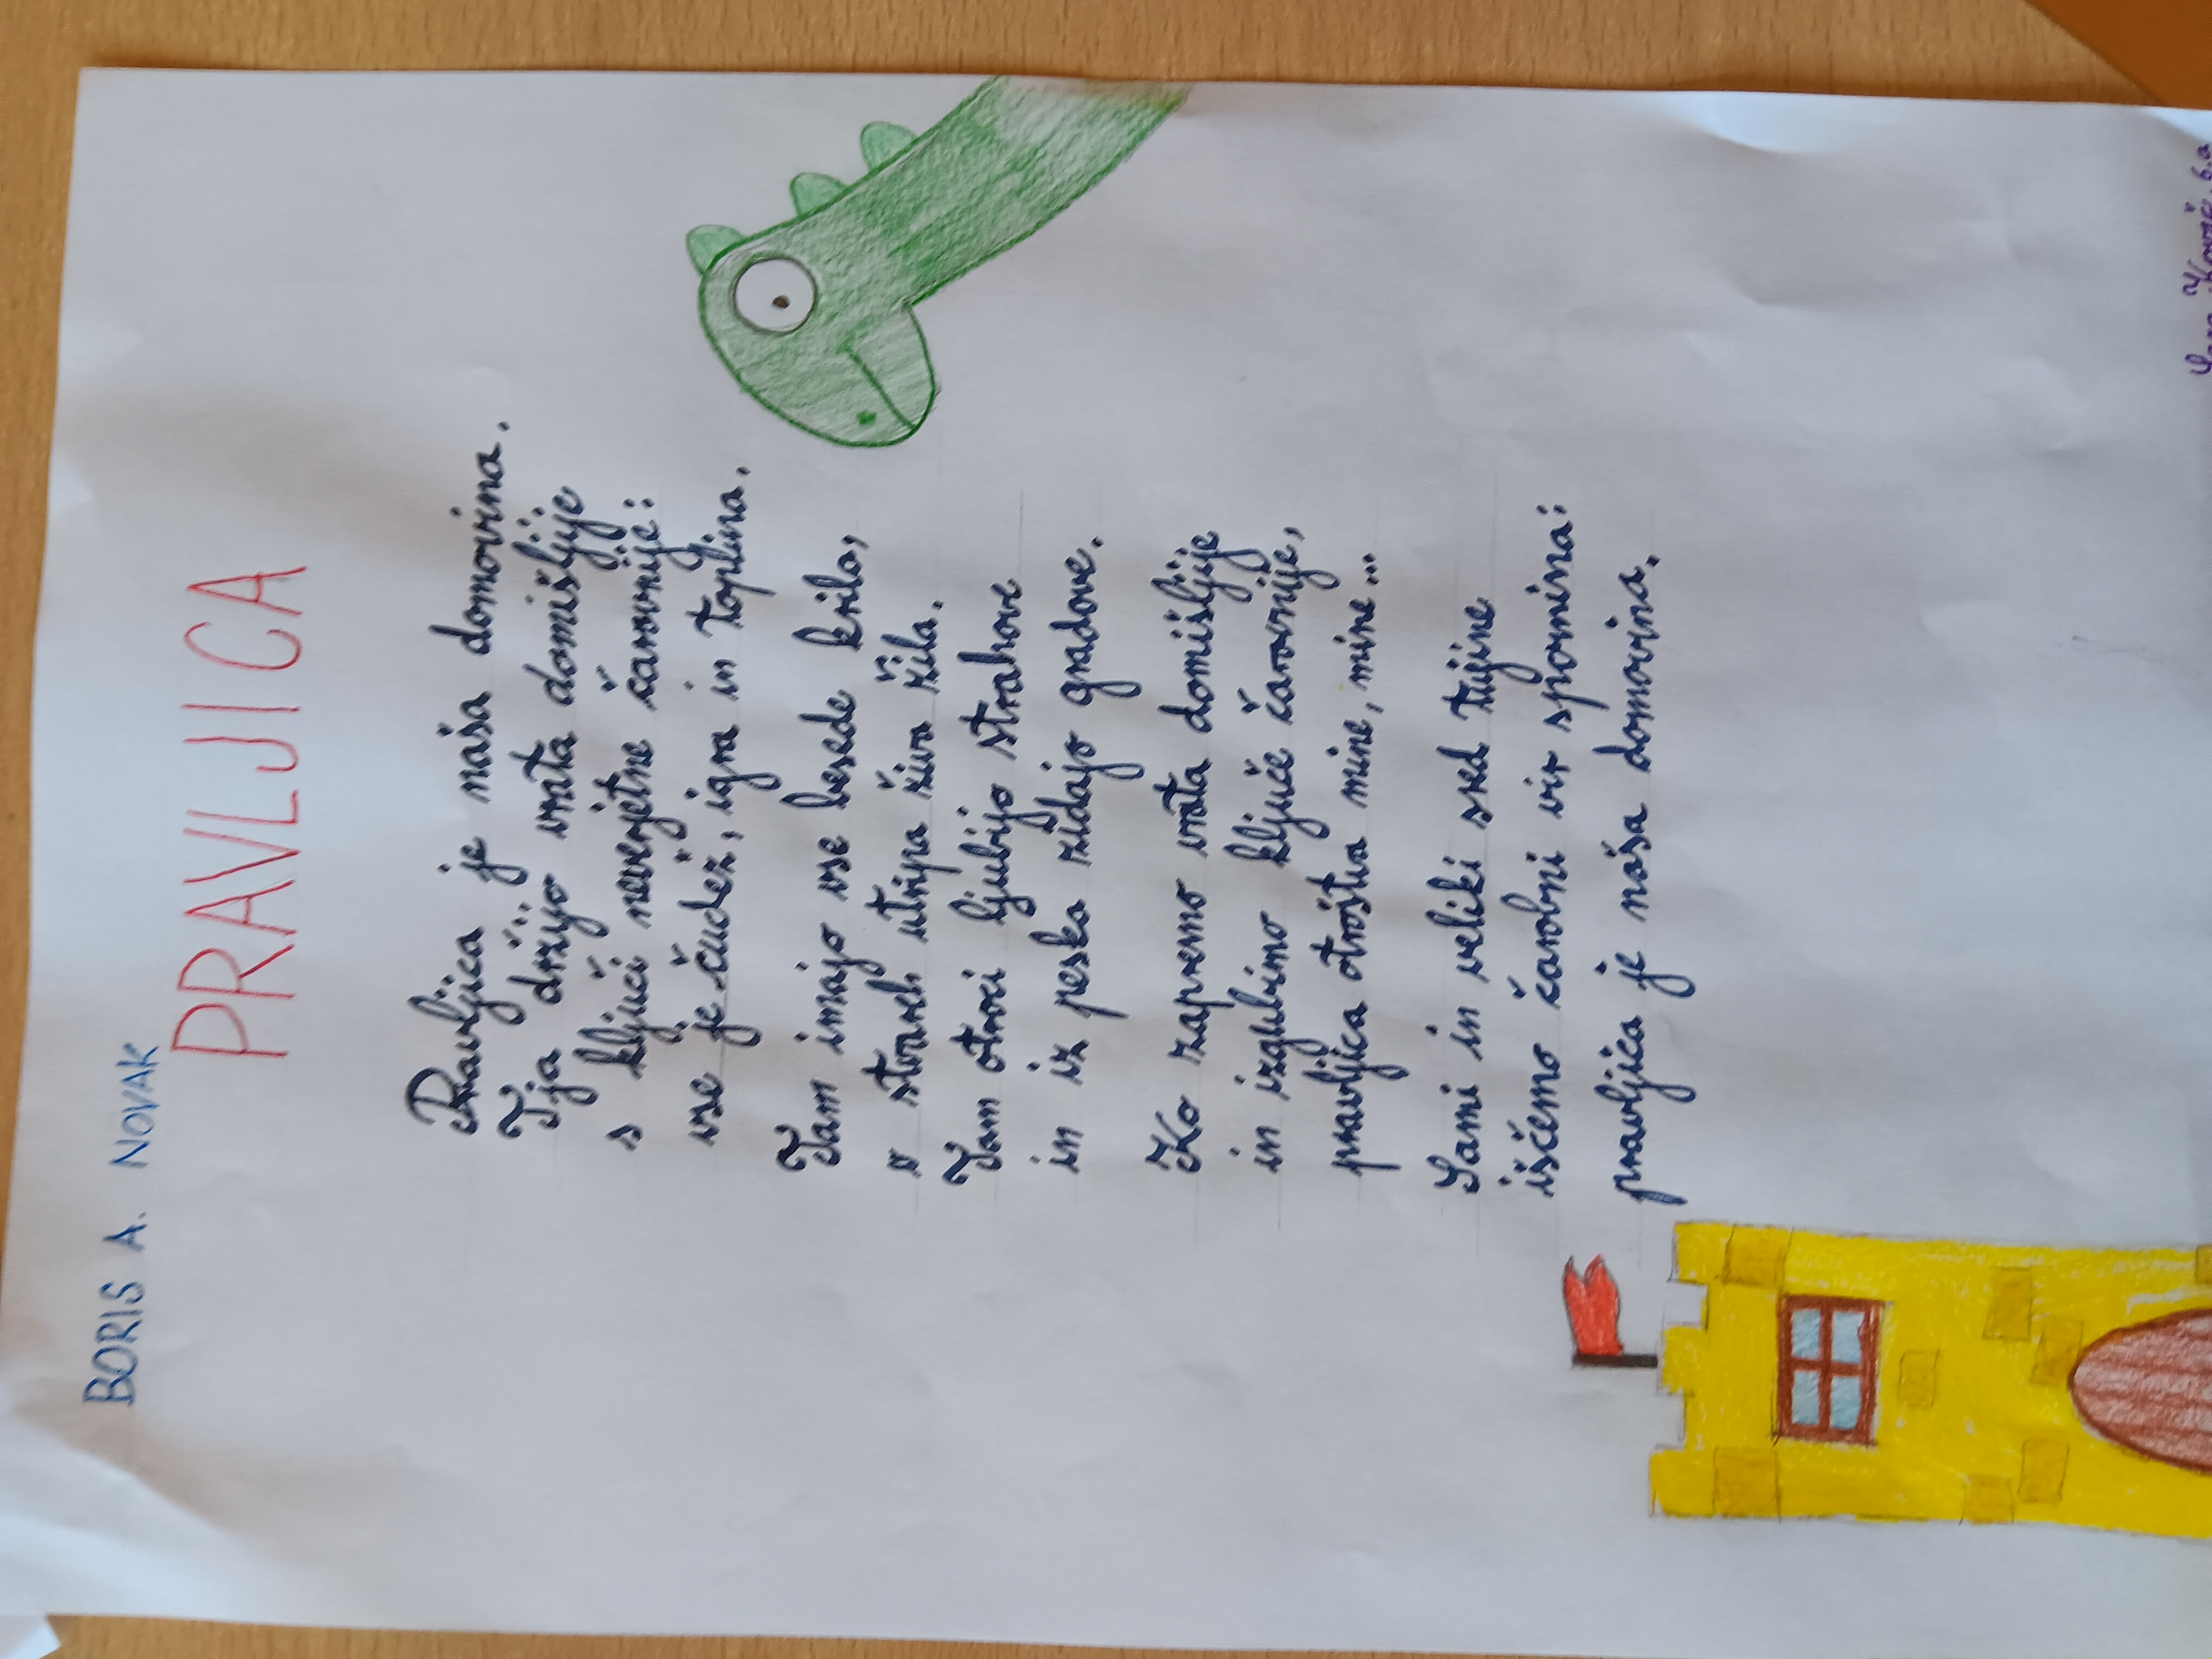 BORIS A. NOVAK
PRAVLJICA
Pravljica je naša domovina.
Tja držijo vrata domišljije
s ključi neverjetne čarovnije:
vse je čudež, igra in toplina.
Tam imajo vse besede krila,
v stvareh utripa živa žila.
Tam otroci ljubijo strahove
in iz peska zidajo gradove.
Ko zapremo vrata domišljije
in izgubimo ključe čarovnije,
pravljica otroštva mine, mine, mine...
Sami in veliki sred tujine
iščemo čarobni vir spomina:
pravljica je naša domovina.
6.a